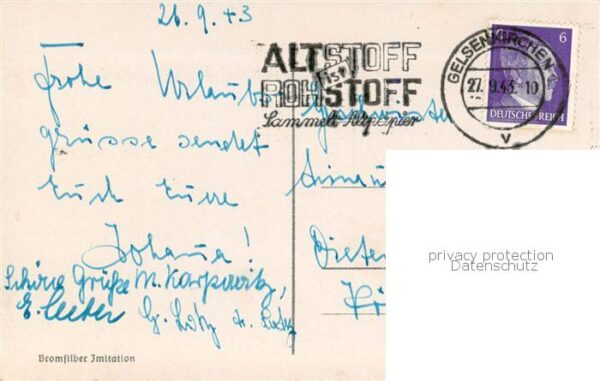 26.9.43
Frohe Urlaubs
grüsse sendet
Euch Eure
Johanna!
Schöne Grüße M. Karpowitz,
Bromsilber Imitation
ALTSTOFF
ist
ROHSTOFF
Sammelt Altpapier
GELSENKIRCHEN
27.9.43. 10
v
6
DEUTSCHES REICH
Dieter
privacy protection
Datenschutz